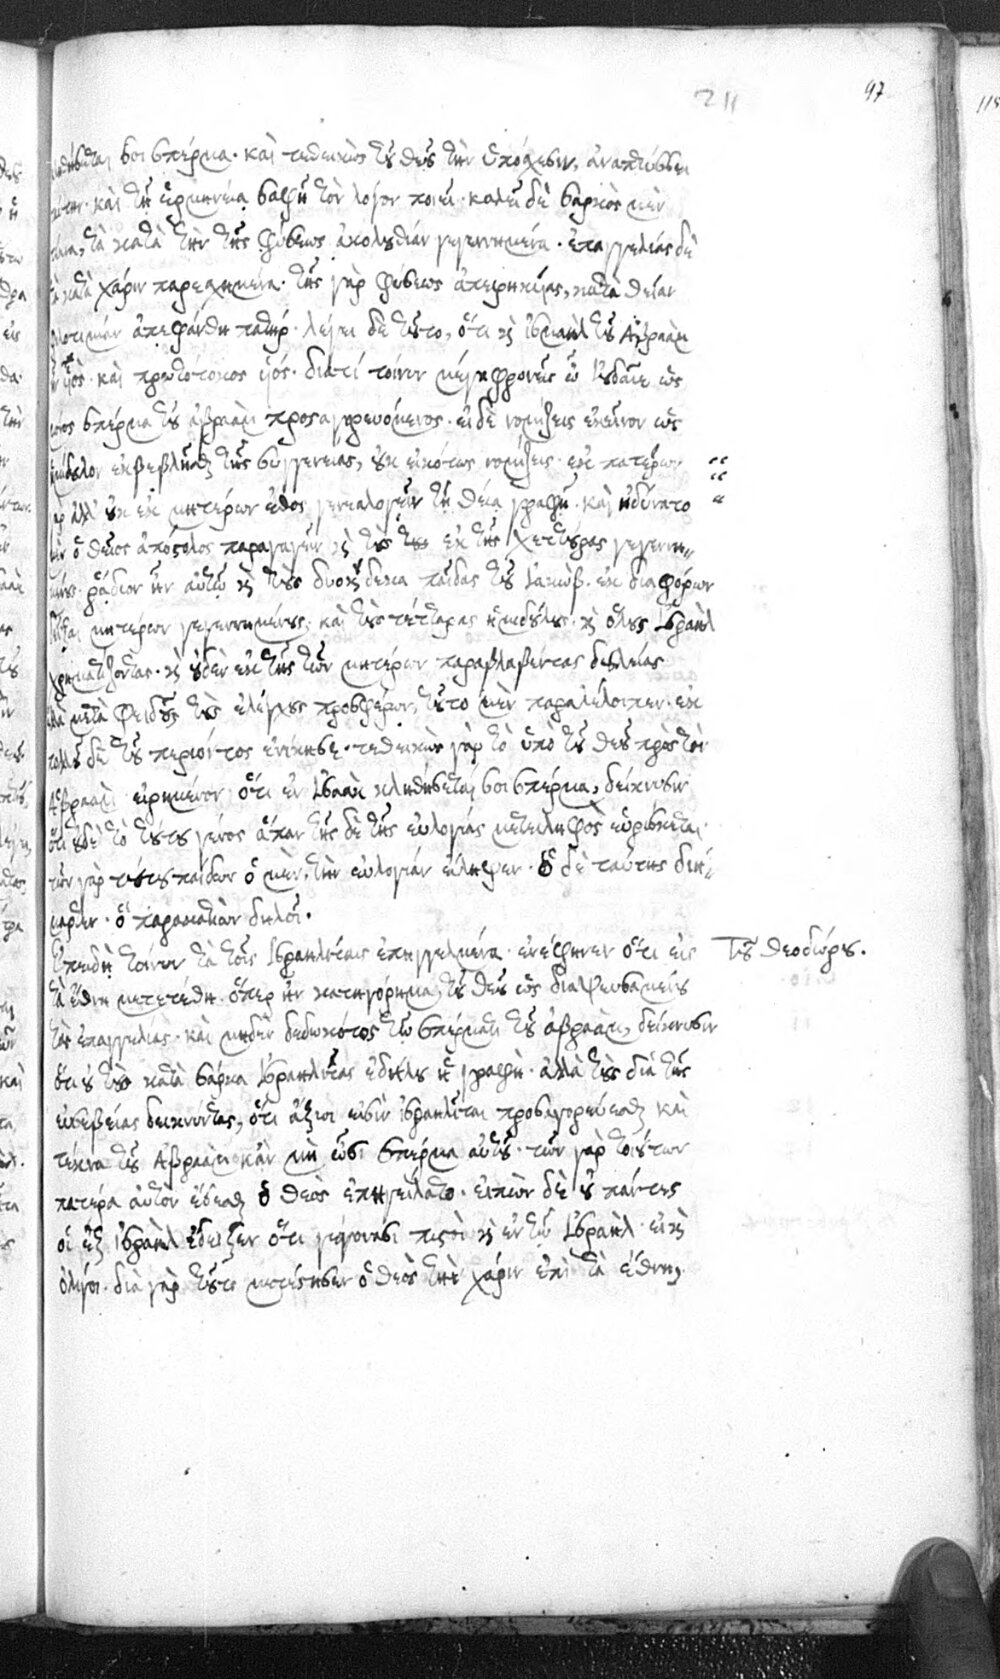 97
211
115
κληθήσεταί σοι σπέρμα. καὶ τεθεικὼς τοῦ θεοῦ τὴν ὑπόσχεσιν, ἀναπτύσσει
ταύτην. καὶ τῇ ἑρμηνείᾳ σαφῆ τὸν λόγον ποιεῖ. καλεῖ δὲ σαρκὸς μὲν
τέκνα, τὰ κατὰ τὴν τῆς φύσεως ἀκολουθίαν γεγεννημένα. ἐπαγγελίας δὲ
τὰ κατὰ χάριν παρεσχημένα. τῆς γὰρ φύσεως ἀπειρηκυίας, κατὰ θείαν
φιλοτιμίαν ἀπεφάνθη πατήρ. λέγει δὲ τοῦτο, ὅτι κỳ ἰσμαὴλ τοῦ Ἀβραὰμ
ἦν υἱός. καὶ πρωτότοκος υἱός. διατί τοίνυν μέγα φρονεῖς ὦ Ἰουδαῖε ὡς
μόνος σπέρμα τοῦ ἀβραὰμ προσαγορευόμενος. εἰ δὲ νομίζεις ἐκεῖνον ὡς
ἡμίδουλον ἐκβεβλῆσθαι τῆς συγγενείας, οὐκ εἰκότως νομίζεις. ἐκ πατέρων
γὰρ ἀλλ' οὐκ ἐκ μητέρων ἔθος γενεαλογεῖν τῇ θείᾳ γραφῇ. καὶ ἠδύνατο
μὲν ὁ θεῖος ἀπόστολος παραγαγεῖν κỳ τοὺς ἐκ τῆς χεττούρας γεγεννη-
μένους. ῥᾴδιον ἦν αὐτῷ κỳ τοὺς δυοκαίδεκα παῖδας τοῦ Ἰακὼβ. ἐκ διαφόρων
δεῖξαι μητέρων γεγεννημένους. καὶ τοὺς τέτταρας ἡμιδούλους. κỳ ὅλους Ἰσραὴλ
χρηματίζοντας. κỳ οὐδὲν ἐκ τῆς τῶν μητέρων παραβλαβέντας δουλείας
ἀλλὰ μετὰ φειδοῦς τοὺς ἐλέγχους προσφέρων, τοῦτο μὲν παραλέλοιπεν. ἐκ
πολλοῦ δὲ τοῦ περιόντος ἐνίκησε. τεθεικὼς γὰρ τὸ ὑπὸ τοῦ θεοῦ πρὸς τὸν
Ἀβραὰμ εἰρημένον ὅτι ἐν Ἰσαὰκ κληθήσεταί σοι σπέρμα, δείκνυσιν
ὅτι οὐδὲ τὸ τούτου γένος ἅπαν τῆς δὲ τῆς εὐλογίας μετειληφὸς εὑρίσκεται.
τῶν γὰρ τούτου παίδων ὁ μὲν, τὴν εὐλογίαν εἴληφεν. ὁ δὲ ταύτης διή-
μαρτεν. ὁ παραυτίκα δηλοῖ.
Ἐπειδὴ τοίνυν τὰ τοῖς Ἰσραηλίταις ἐπηγγελμένα. ἐνέφηνεν ὅτι εἰς Τοῦ θεοδώρου.
τὰ ἔθνη μετετέθη. ὅπερ ἦν κατηγόρημα τοῦ θεοῦ ὡς διαψευσαμένου
τὰς ἐπαγγελίας. καὶ μηδὲν δεδωκότος τῷ σπέρματι τοῦ ἀβραὰμ, δείκνυσιν
ὅτι οὐ τοὺς κατὰ σάρκα Ἰσραηλίτας ἐδήλου ἡ γραφὴ. ἀλλὰ τοὺς διὰ τῆς
εὐσεβείας δεικνύντας, ὅτι ἄξιοι εἰσὶν ἰσραηλῖται προσαγορεύεσθαι καὶ
τέκνα τοῦ Ἀβραὰμ κἂν μὴ ὦσι σπέρμα αὐτοῦ. τῶν γὰρ τοιούτων
πατέρα αὐτὸν ἔσεσθαι ὁ θεὸς ἐπηγγείλατο. εἰπὼν δὲ οὐ πάντες
οἱ ἐξ ἰσραὴλ ἔδειξεν ὅτι γεγόνασι πιστοὶ κỳ ἐν τῷ Ἰσραὴλ. εἰ κỳ
ὀλίγοι. διὰ γὰρ τοῦτο μετέστησεν ὁ θεὸς τὴν χάριν ἐπὶ τὰ ἔθνη,